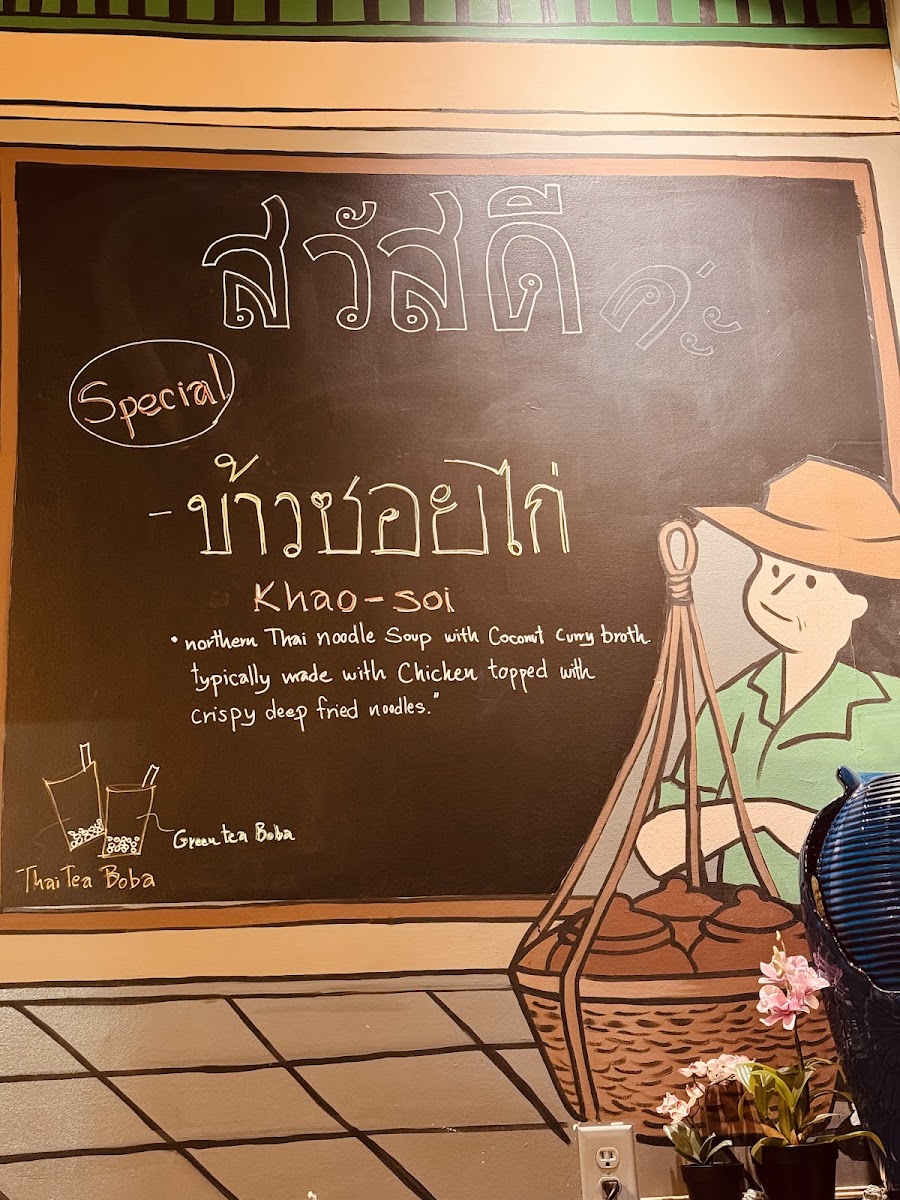 สวัสดี ค่ะ
Special
- ข้าวซอยไก่
Khao-soi
"northern Thai noodle Soup with Coconut Curry broth.
typically made with Chicken topped with
crispy deep fried noodles."
Green tea Boba
Thai Tea Boba